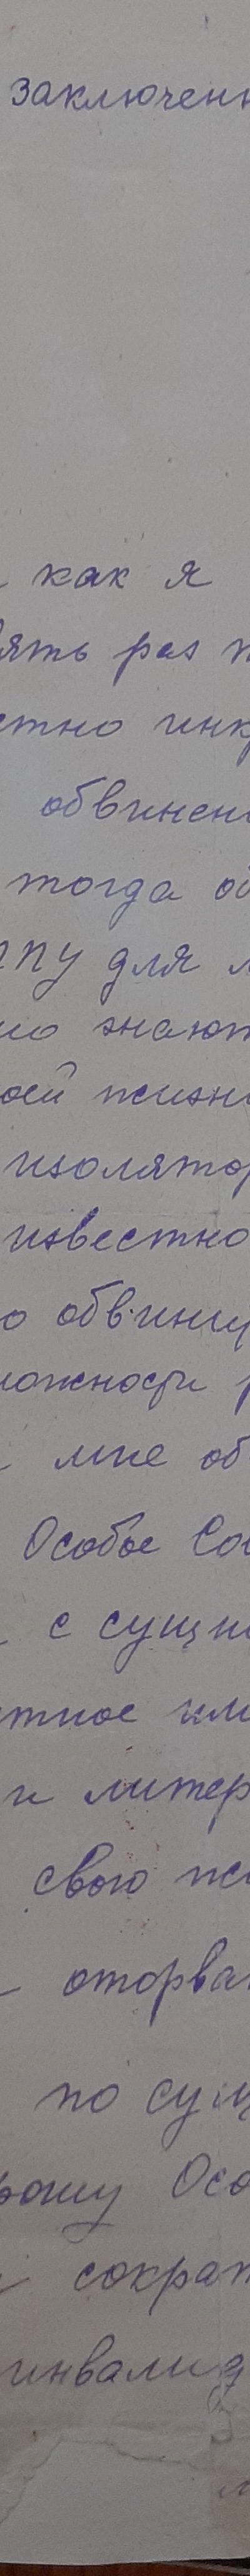 заключенн
как я
ять раз п
стно инкр
обвинени
тогда об
ППУ для м
но знают
оей жизни
изолятор
известно
о обвину
можности р
мне об
Особое Сов
с сущно
тное или
и литер
свою жи
оторван
по сущ
рошу Осо
сократ
инвалид